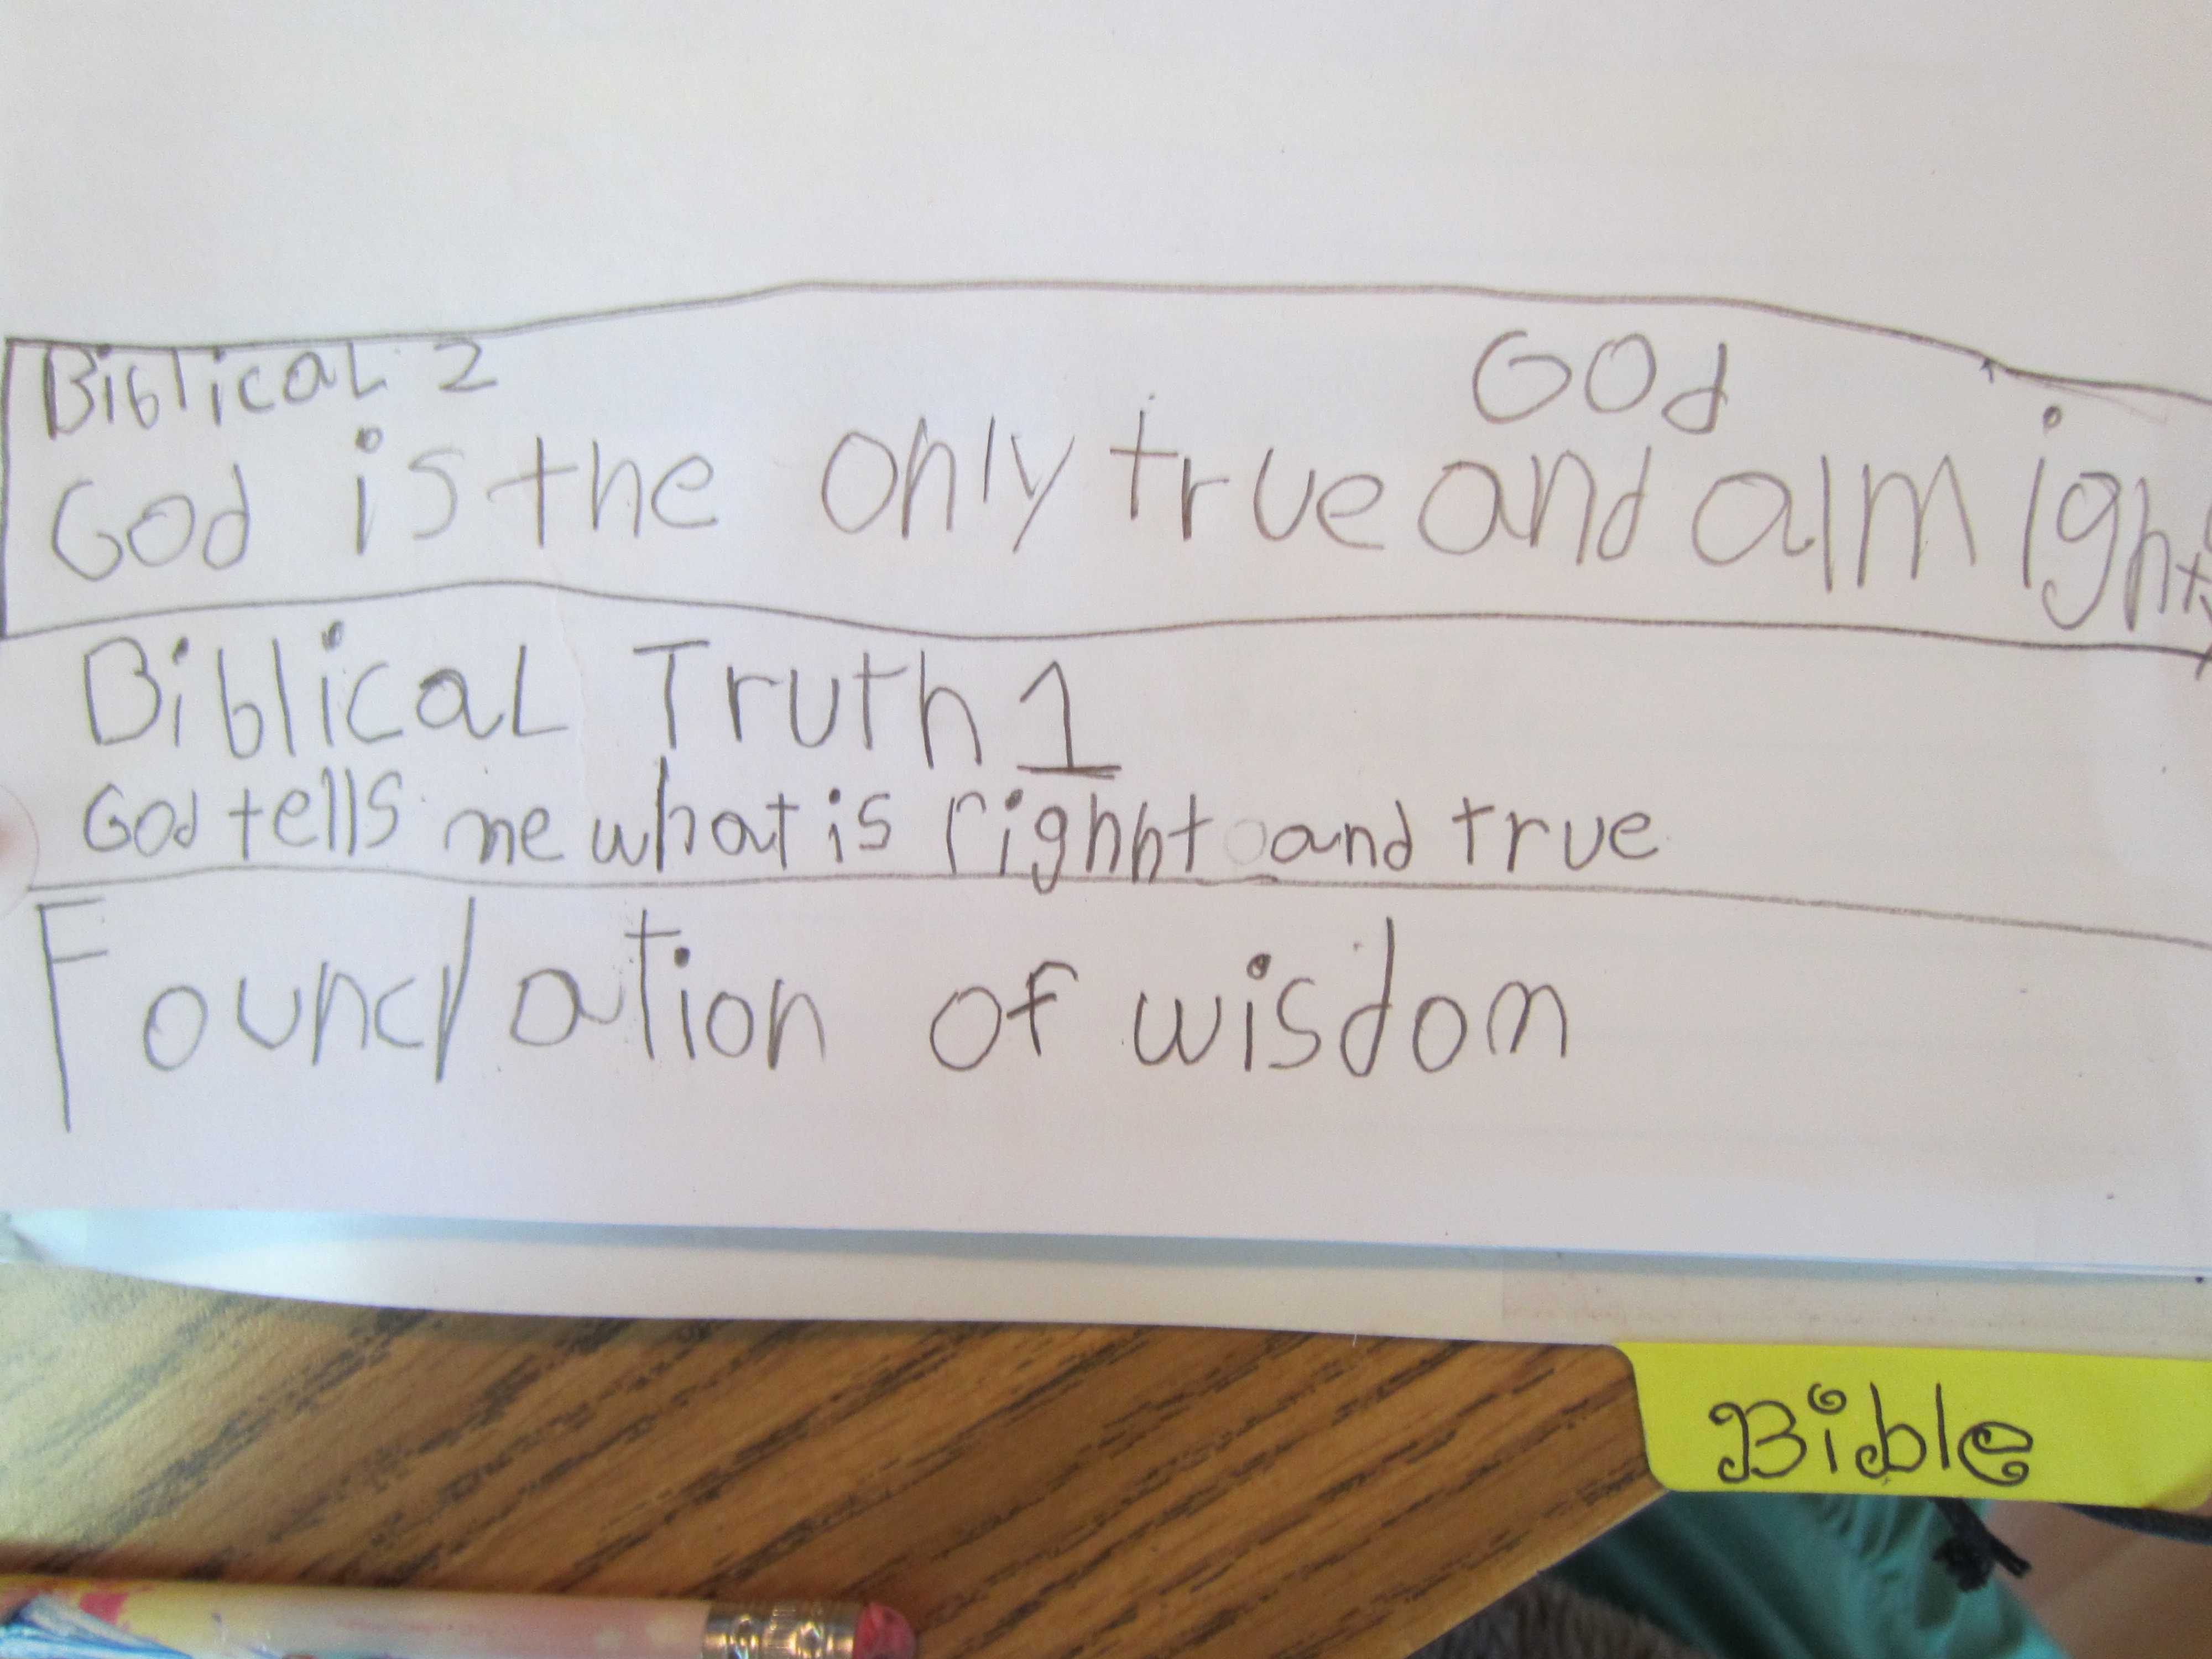 Biblical 2
God
God is the only true and almighty
Biblical Truth 1
God tells me what is righht and true
Foundation of wisdom
Bible